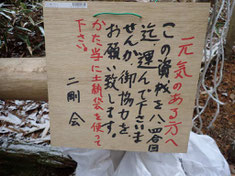 元気のある方へ
この資材を八合目
迄運んで下さいま
せんか御協力を
お願い致します。
かた当に土納袋を使って
下さい
二剛会